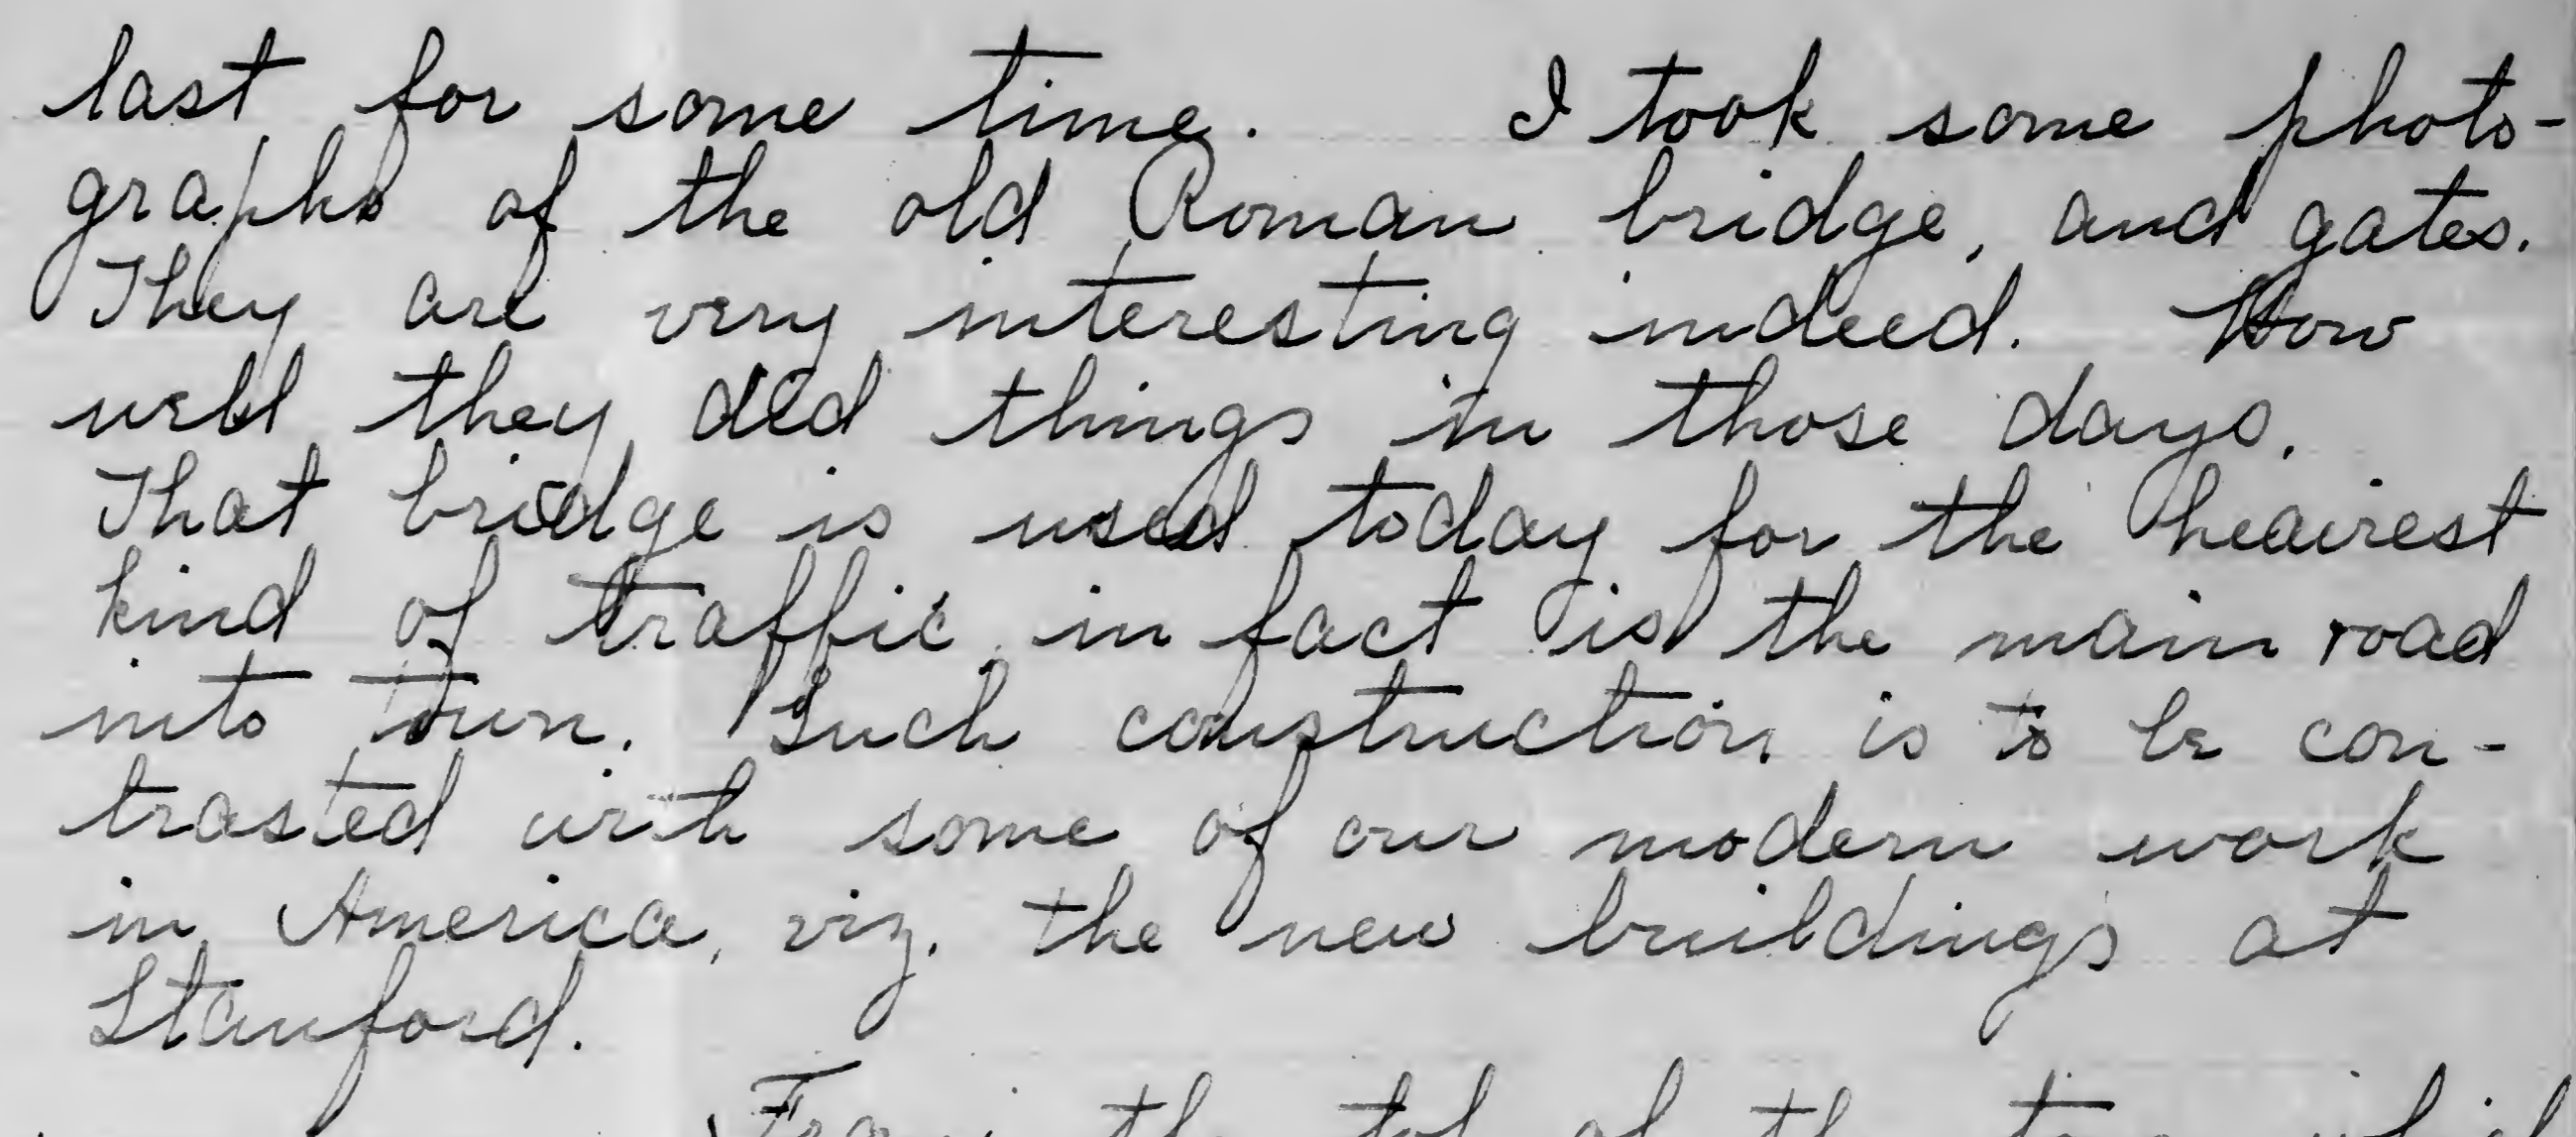 last for some time. I took some photo-
graphs of the old Roman bridge, and gates.
They are very interesting indeed. How
well they did things in those days.
That bridge is used today for the heaviest
kind of traffic, in fact is the main road
into town. Such construction is to be con-
trasted with some of our modern work
in America, viz. the new buildings at
Stanford.
From the top of the